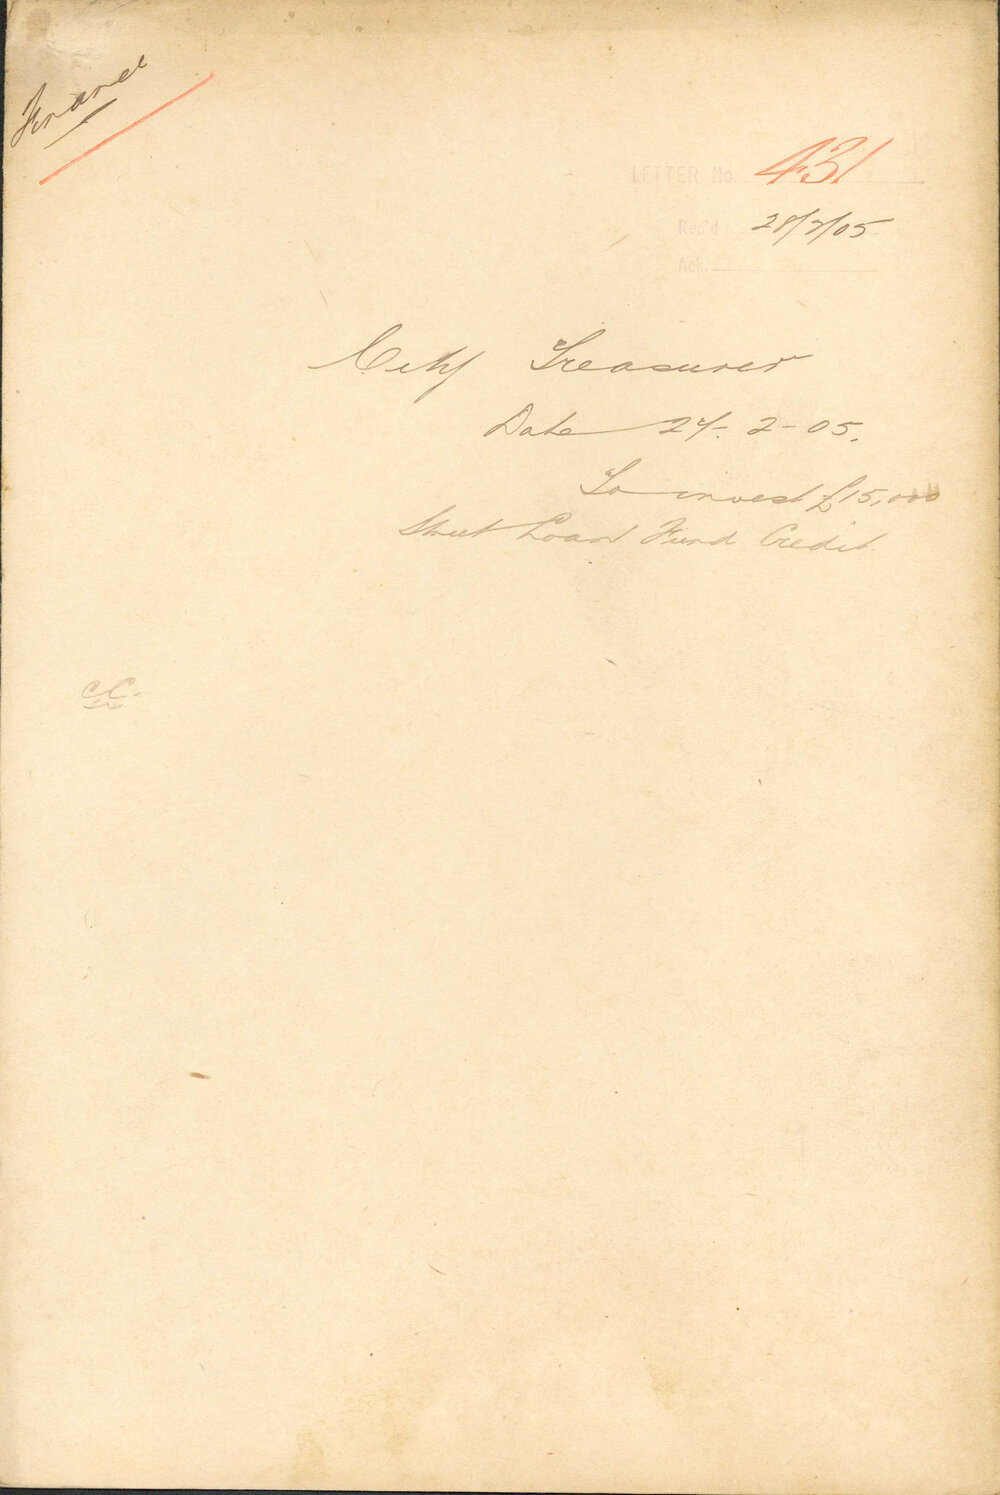 Finance
LETTER No. 431
Rec'd 28/2/05
Ack.
City Treasurer
Date 27-2-05.
To invest £15,000
Street Loan Fund Credit.
CC.